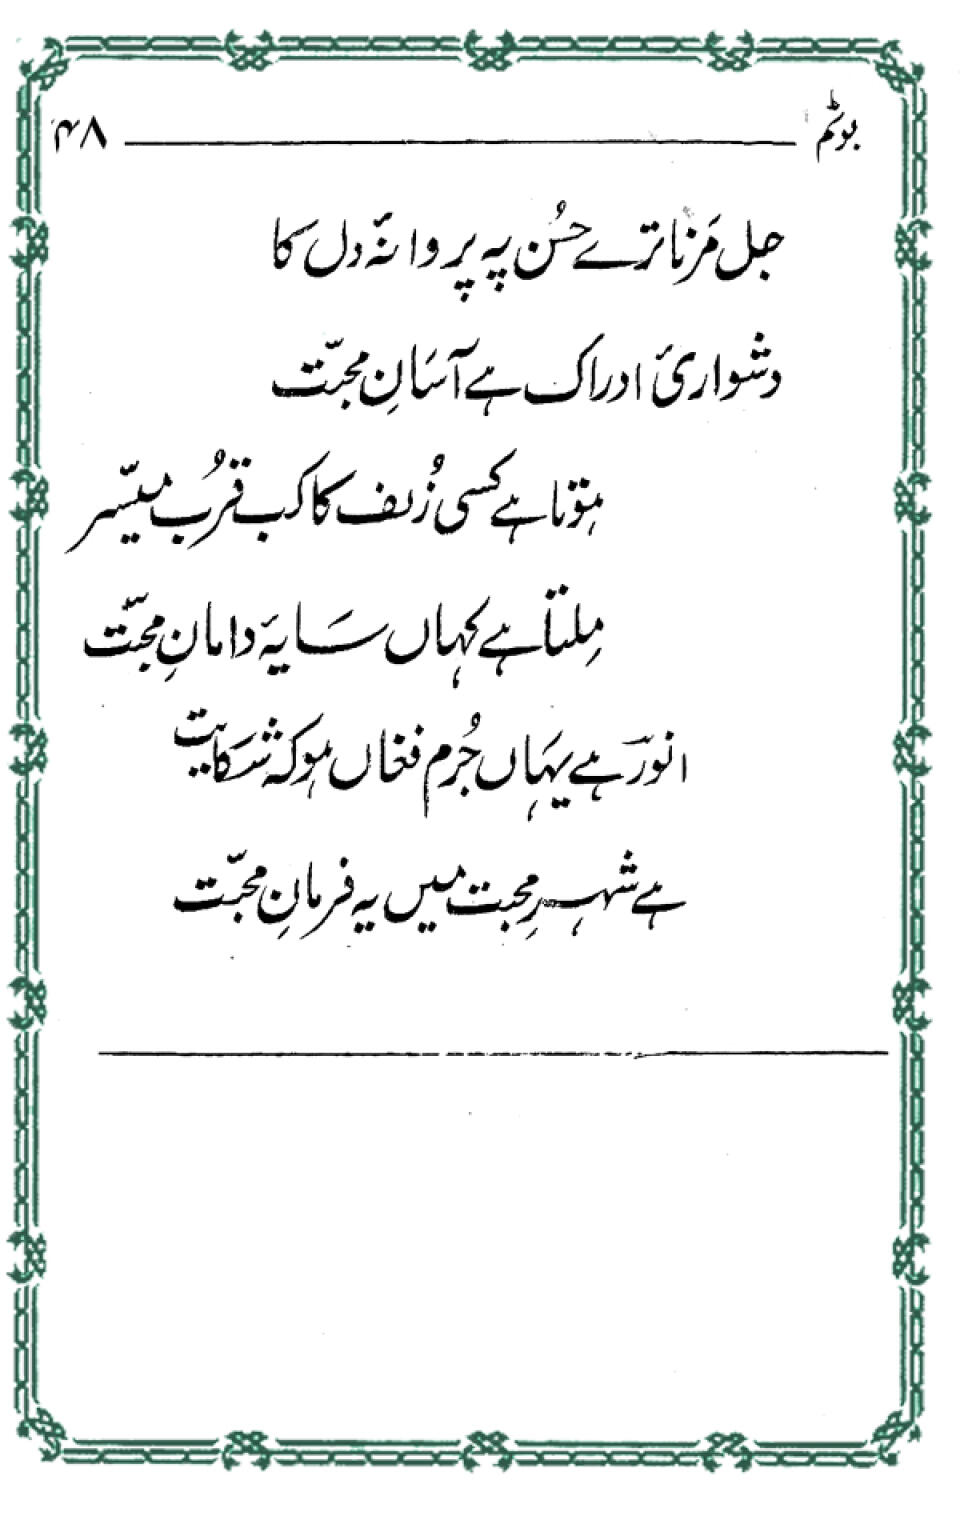 بوٹم ۴۸
جل مَرنا ترے حُسن پہ پروانۂ دل کا
دشواریٔ ادراک ہے آسَانِ محبّت
ہوتا ہے کسی زُلف کا کب قُربِ میسّر
مِلتا ہے کہاں سَایۂ دامانِ محبّت
انورؔ ہے یہاں جُرم فغاں ہو کہ شکایت
ہے شہرِ محبت میں یہ فرمانِ محبّت